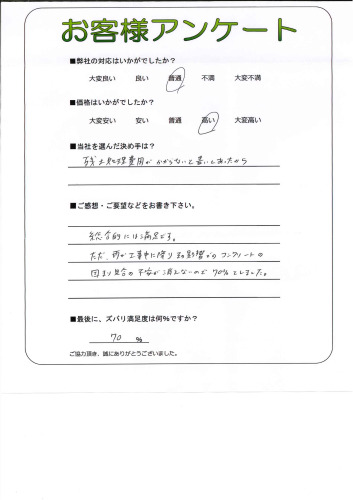 お客様アンケート
■弊社の対応はいかがでしたか？
大変良い 良い 普通 不満 大変不満
■価格はいかがでしたか？
大変安い 安い 普通 高い 大変高い
■当社を選んだ決め手は？
残土処理費用がかからないと書いてあったから
■ご感想・ご要望などをお書き下さい。
総合的には満足です。
ただ、雨が工事中に降り 影響からコンクリートの
固まり具合の不安が消えないので70%としました。
■最後に、ズバリ満足度は何%ですか？
70 %
ご協力頂き、誠にありがとうございました。